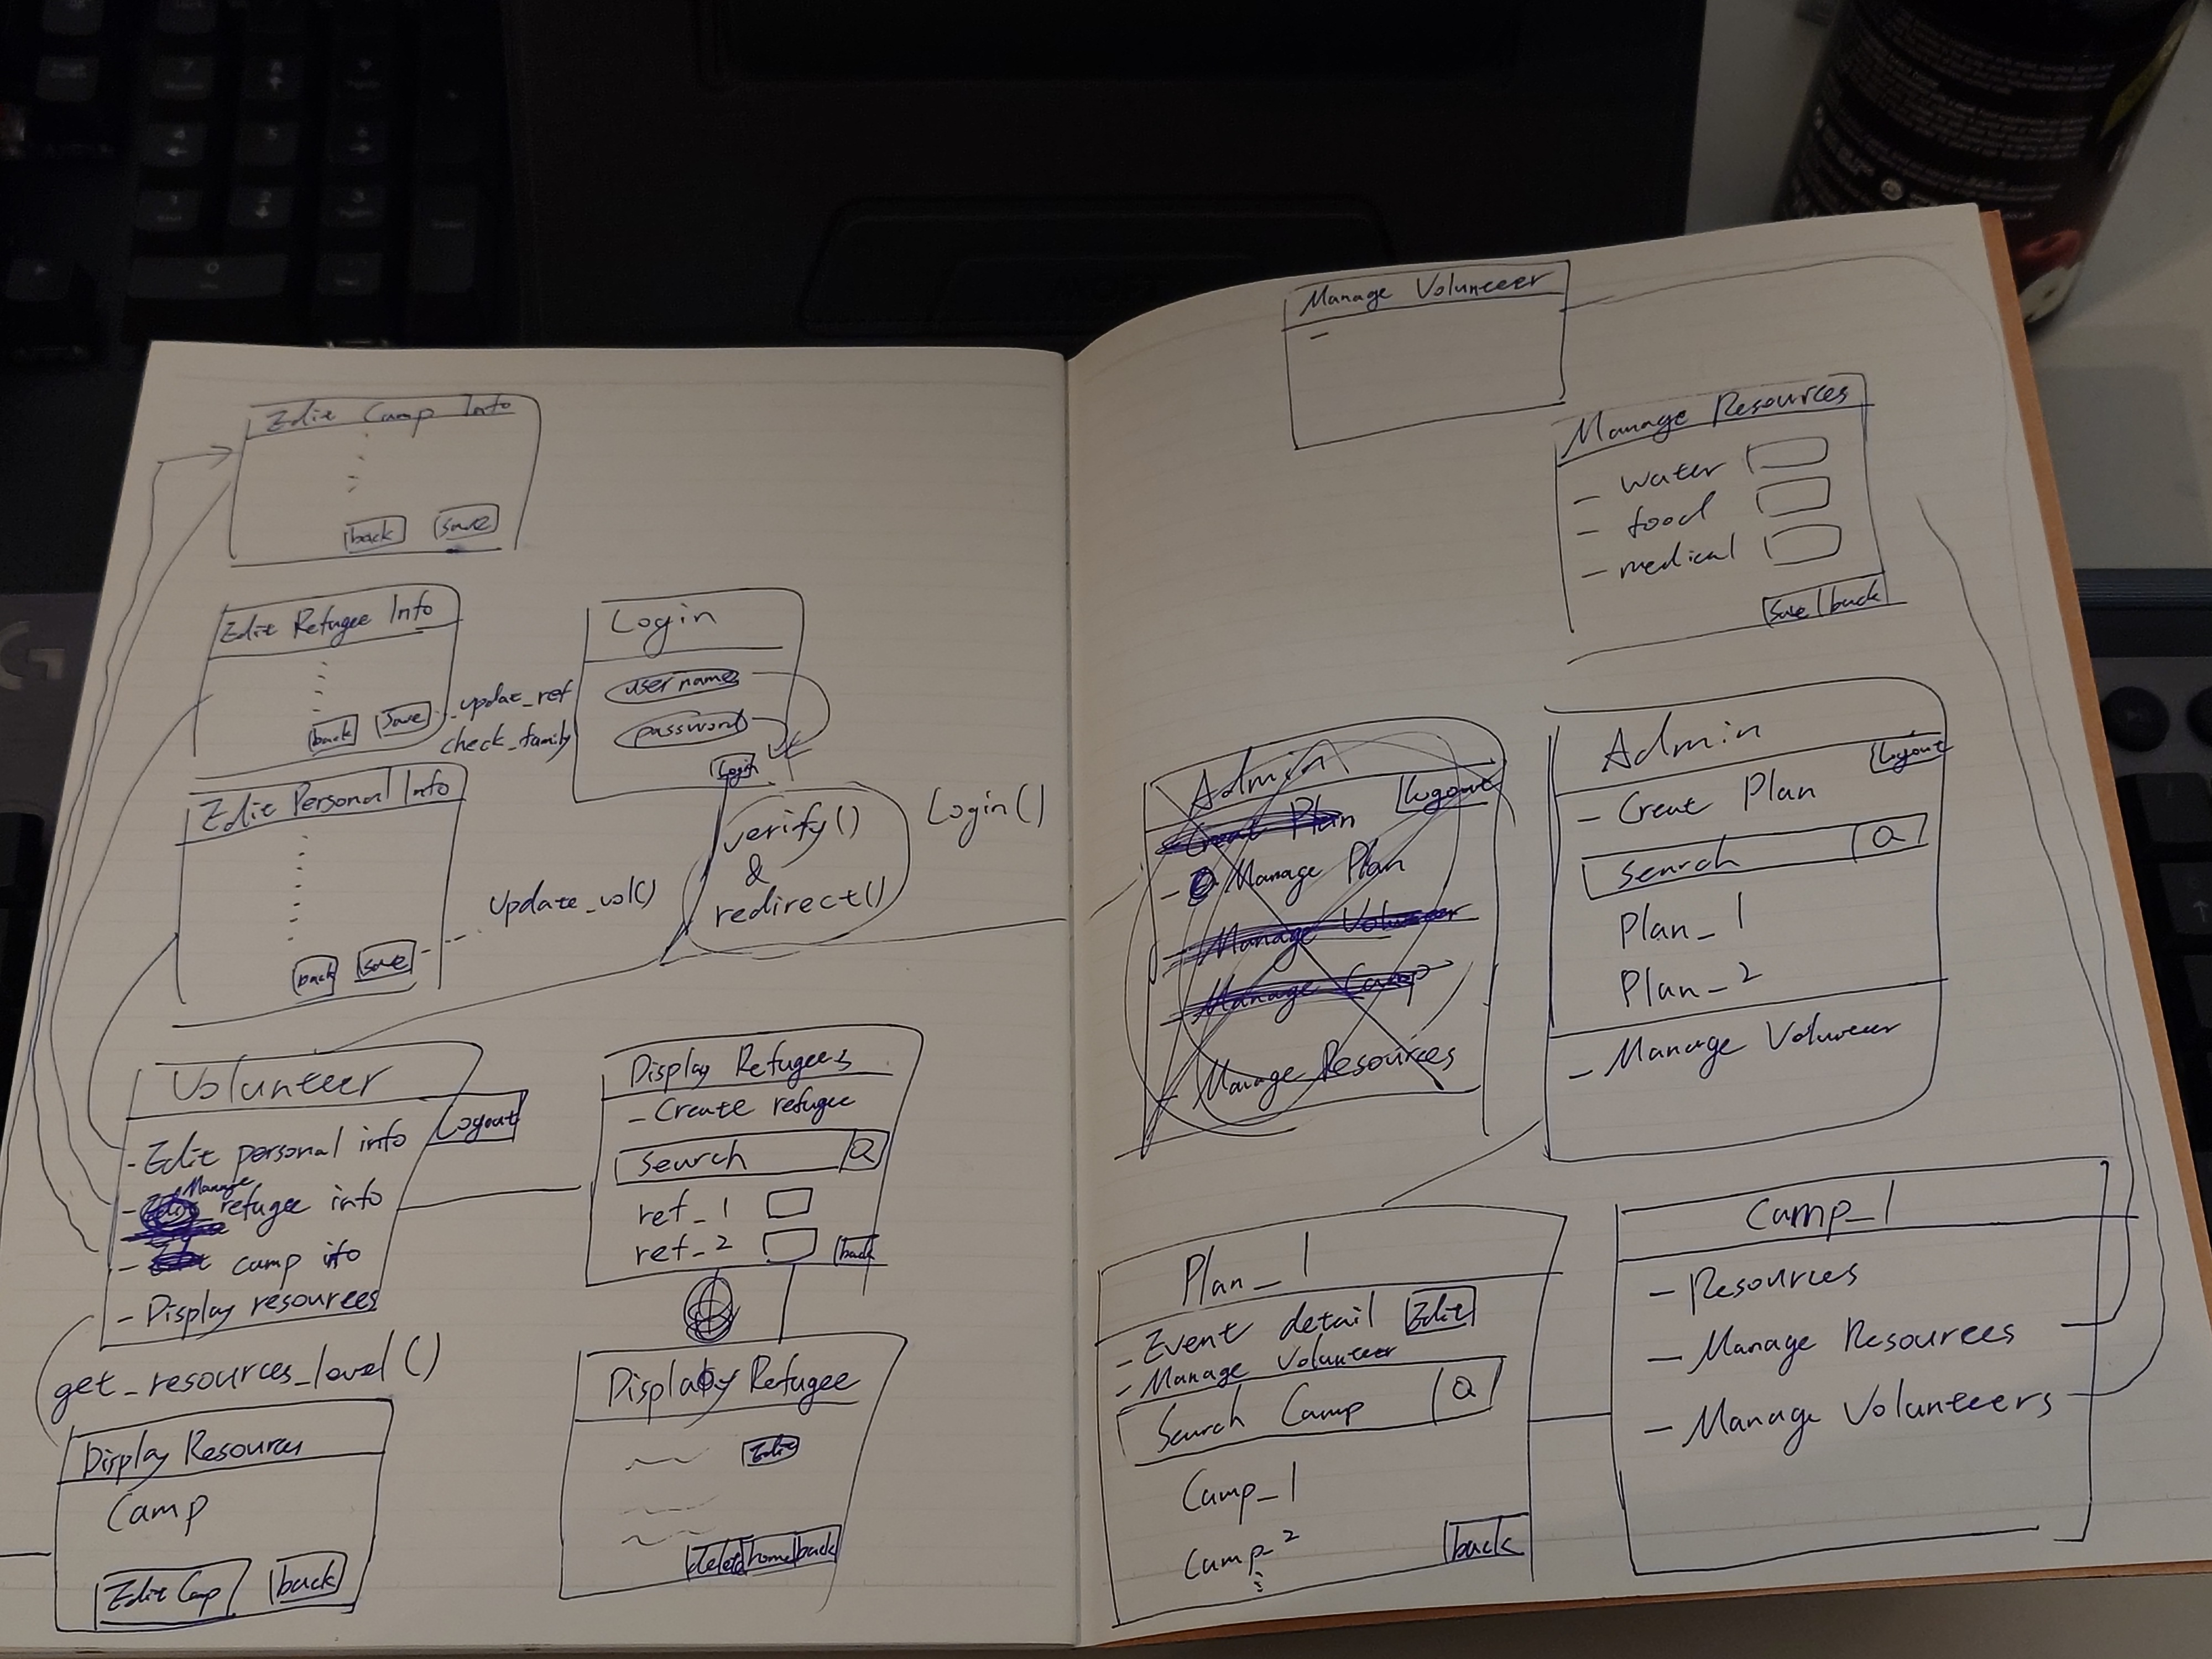 Edit Camp Info
back save
Edit Refugee Info
back save
update_ref
check_family
Edit Personal Info
back save
update_vol()
Login
username
password
Login
verify()
&
redirect()
Login()
Volunteer
Logout
- Edit personal info
- Manage refugee info
- camp ifo
- Display resources
get_resources_level()
Display Resources
Camp
Edit Camp back
Display Refugees
- Create refugee
Search Q
ref_1
ref_2 back
Display Refugee
Edit
delete home back
Manage Volunteer
-
Manage Resources
- water
- food
- medical
save back
Admin
Logout
Creat Plan
- Manage Plan
- Manage Volunteer
- Manage Camp
- Manage Resources
Admin
Logout
- Creat Plan
Search Q
Plan_1
Plan_2
- Manage Volunteer
Plan_1
- Event detail Edit
- Manage Volunteer
Search Camp Q
Camp_1
Camp_2
back
Camp_1
- Resources
- Manage Resources
- Manage Volunteers